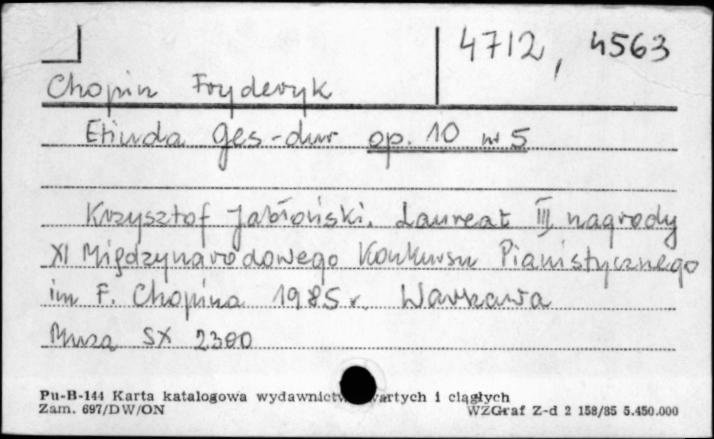 4712, 4563
Chopin Fryderyk
Etiuda Ges-dur op. 10 nr 5
Krzysztof Jabłoński. Laureat III nagrody
XI Międzynarodowego Konkursu Pianistycznego
im F. Chopina 1985 r. Warszawa
Muza SX 2380
Pu-B-144 Karta katalogowa wydawnictw zwartych i ciągłych
Zam. 697/DW/ON WZGraf Z-d 2 158/85 5.450.000